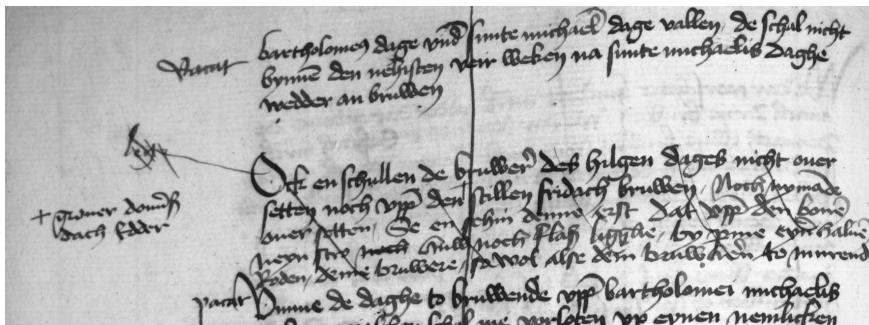 bartholomeus dage vnd sunte michael dage vallen, de schal nicht
Vacat bynnen den nehisten veir weken na sunte michaelis daghe
wedder an bruwen
Ock en schullen de bruwer des hilgen dages nicht ouer
setten noch vpp den stillen fridach bruwen, Noch nymande
+ groner donres ouer setten, Se en sehin denne erst dat vpp den bonen
dach Edder neyn stro noch ruw noch flass ligghe, by pine eyner haluen
Roden, deme bruwere, so wol alse dem bruwheren to murend
vacat Vmme de daghe to bruwende vpp bartholomei michaelis
schal me vorloten vp eynen nemlicken